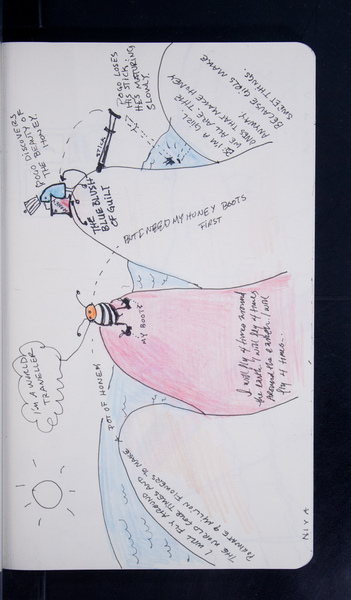 I'M A WORLD
TRAVELLER
I WILL FLY AROUND
THE WORLD FOUR TIMES AND
POLLINATE 4 MILLION FLOWERS TO MAKE
POT OF HONEY
MY BOOTS
I will fly 4 times around
the earth. I will fly 4 times
around the earth. I will
fly 4 times...
BUT I NEED MY HONEY BOOTS
FIRST
POGO DISCOVERS
BEAUTY OF
THE HONEY.
THE
BLUE BLUSH
OF GUILT
STICK
POGO LOSES
HIS STICK.
HE'S MATURING
SLOWLY.
PS I'M A GIRL.
WE ALL ARE. THE
ONES THAT MAKE HONEY
ANYWAY.
BECAUSE GIRLS MAKE
SWEET THINGS.
NIYA